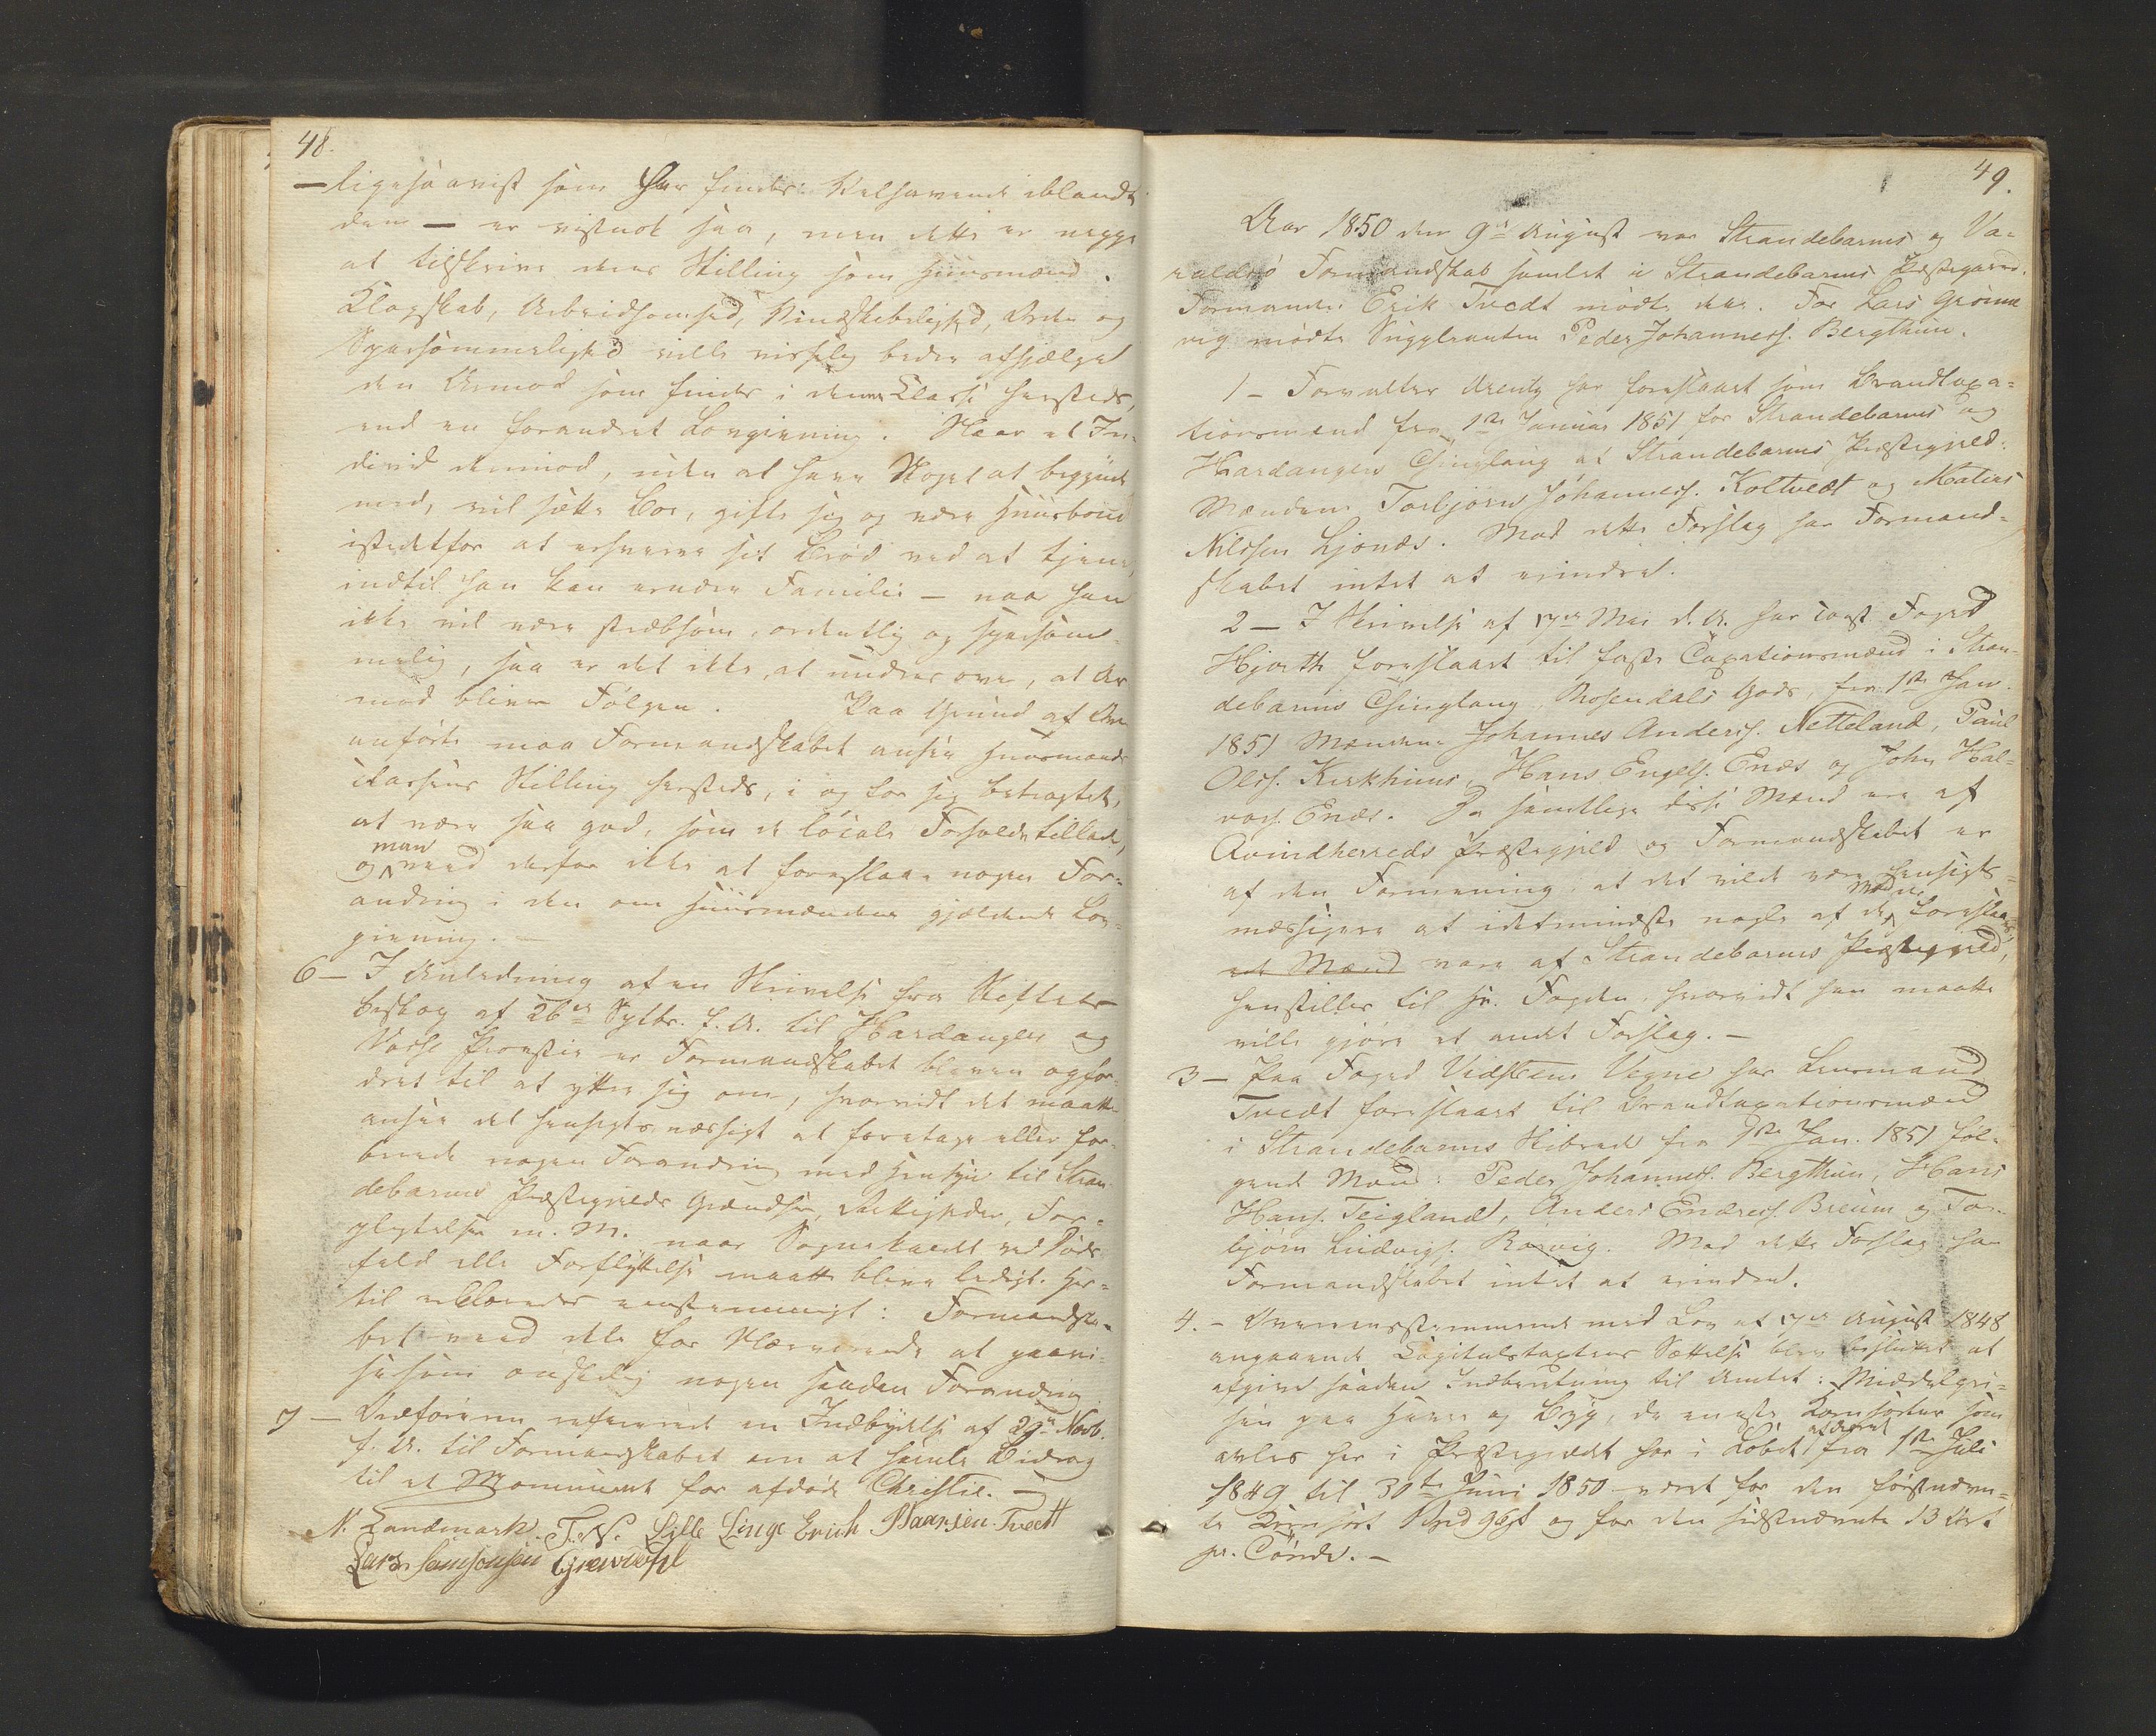 48.
- ligesaavist som her findes Velhavende iblandt
dem - er vistnok saa, men dette er neppe
at tilskrive deres Stilling som Huusmænd.
Klogskab, Arbeidsomhed, Vindskibelighed, Orden og
Sparsommelighed ville visselig bedre afhjælpe
den Armod som findes i denne Classe hersteds,
end en forandret Lovgivning. Naar et In-
divid derimod, uden at have Noget at begynde
med, vil sætte Boe, gifte sig og være Huusbond
istedetfor at erhverve sit Brød ved at tjene,
indtil han kan ernære Familie - naar han
ikke vil være stræbsom, ordentlig og sparsom-
melig, saa er det ikke at undres over, at Ar-
mod bliver Følgen. Paa Grund af Oven-
anførte maa Formandskabet ansee Huusmands-
classens Stilling hersteds, i og for sig betragtet,
at være saa god, som de locale Forholde tillade,
og man veed derfor ikke at foreslaae nogen For-
andring i den om Huusmændene gjældende Lov-
givning. -
6 - I Anledning af en Skrivelse fra Stiftets
Biskop af 26de Septbr. f. A. til Hardanger og
Vosse Provstie er Formandskabet bleven opfor-
dret til at yttre sig om, hvorvidt det maatte
ansee det hensigtsmæssigt at foretage eller for-
berede nogen Forandring med Hensyn til Stran-
debarms Præstegjelds Grændser, Rettigheder, For-
pligtelser m. M. naar Sognekaldet ved Døds-
fald eller Forflyttelse maatte blive ledigt. Her-
til erklæredes eenstemmigt: Formandska-
bet veed ikke for Nærværende at paavi-
se som ønskelig nogen saadan Forandring
7 - Ordføreren refererede en Indbydelse af 29de Novb.
f. A. til Formandskabet om at samle Bidrag
til et Monument for afdøde Christie. -
N. Landmark. T. N. Lille Linge Erich Baarsen Tvedt
Lars Samsonsen
49.
Aar 1850 den 9de August var Strandebarms og Va-
raldsø Formandskab samlet i Strandebarms Præstegaard.
Formanden Erik Tvedt mødte ikke. For Lars Grønne
vig mødte Suppleanten Peder Johanness. Bergthun.
1 - Forvalter Arentz har foreslaaet som Brandtaxa-
tionsmænd fra 1ste Januar 1851 for Strandebarms og
Hardangers Thinglaug af Strandebarms Præstegjeld:
Mændene Torbjørn Johanness. Koltvedt og Matias
Nilssen Ljonæs. Mod dette Forslag har Formand-
skabet intet at erindre.
2 - I Skrivelse af 17de Mai d. A. har const. Foged
Hjorth foreslaaet til faste Taxationsmænd i Stran-
debarms Thinglaug, Rosendals Gods, fra 1ste Jan.
1851 Mændene Johannes Anderss. Netteland, Paul
Olss. Kirkhuus, Hans Engels. Enæs og John Hal-
vors. Enæs. Da samtlige disse Mænd ere af
Qvindherreds Præstegjeld og Formandskabet er
af den Formening, at det vilde være hensigts-
mæssigere at idetmindste nogle af de Mænd foreslaa-
ede Mænd vare af Strandebarms Præstegjeld,
henstilles til Hr. Fogden, hvorvidt han maatte
ville gjøre et andet Forslag. -
3 - Paa Foged Vidsteens Vegne har Lensmand
Tvedt foreslaaet til Brandtaxationsmænd
i Strandebarms Skibrede fra 1ste Jan. 1851 føl-
gende Mænd: Peder Johanness. Bergthun, Hans
Hans. Teigland, Anders Endress. Breum og Tor-
bjørn Ludvigs. Rørvig. Mod dette Forslag har
Formandskabet intet at erindre.
4. - Overensstemmende med Lov af 17de August 1848
angaaende Capitelstaxtens Sættelse blev besluttet at
afgive saadan Indberetning til Amtet: Middelpri-
sen paa Havre og Byg, de eneste Kornsorter som
avles her i Præstegjeldet har i Løbet af Aaret fra 1ste Juli
1849 til 30te Juni 1850 været for den førstnævn-
te Kornsort og for den sidstnævnte
pr. Tønde. -